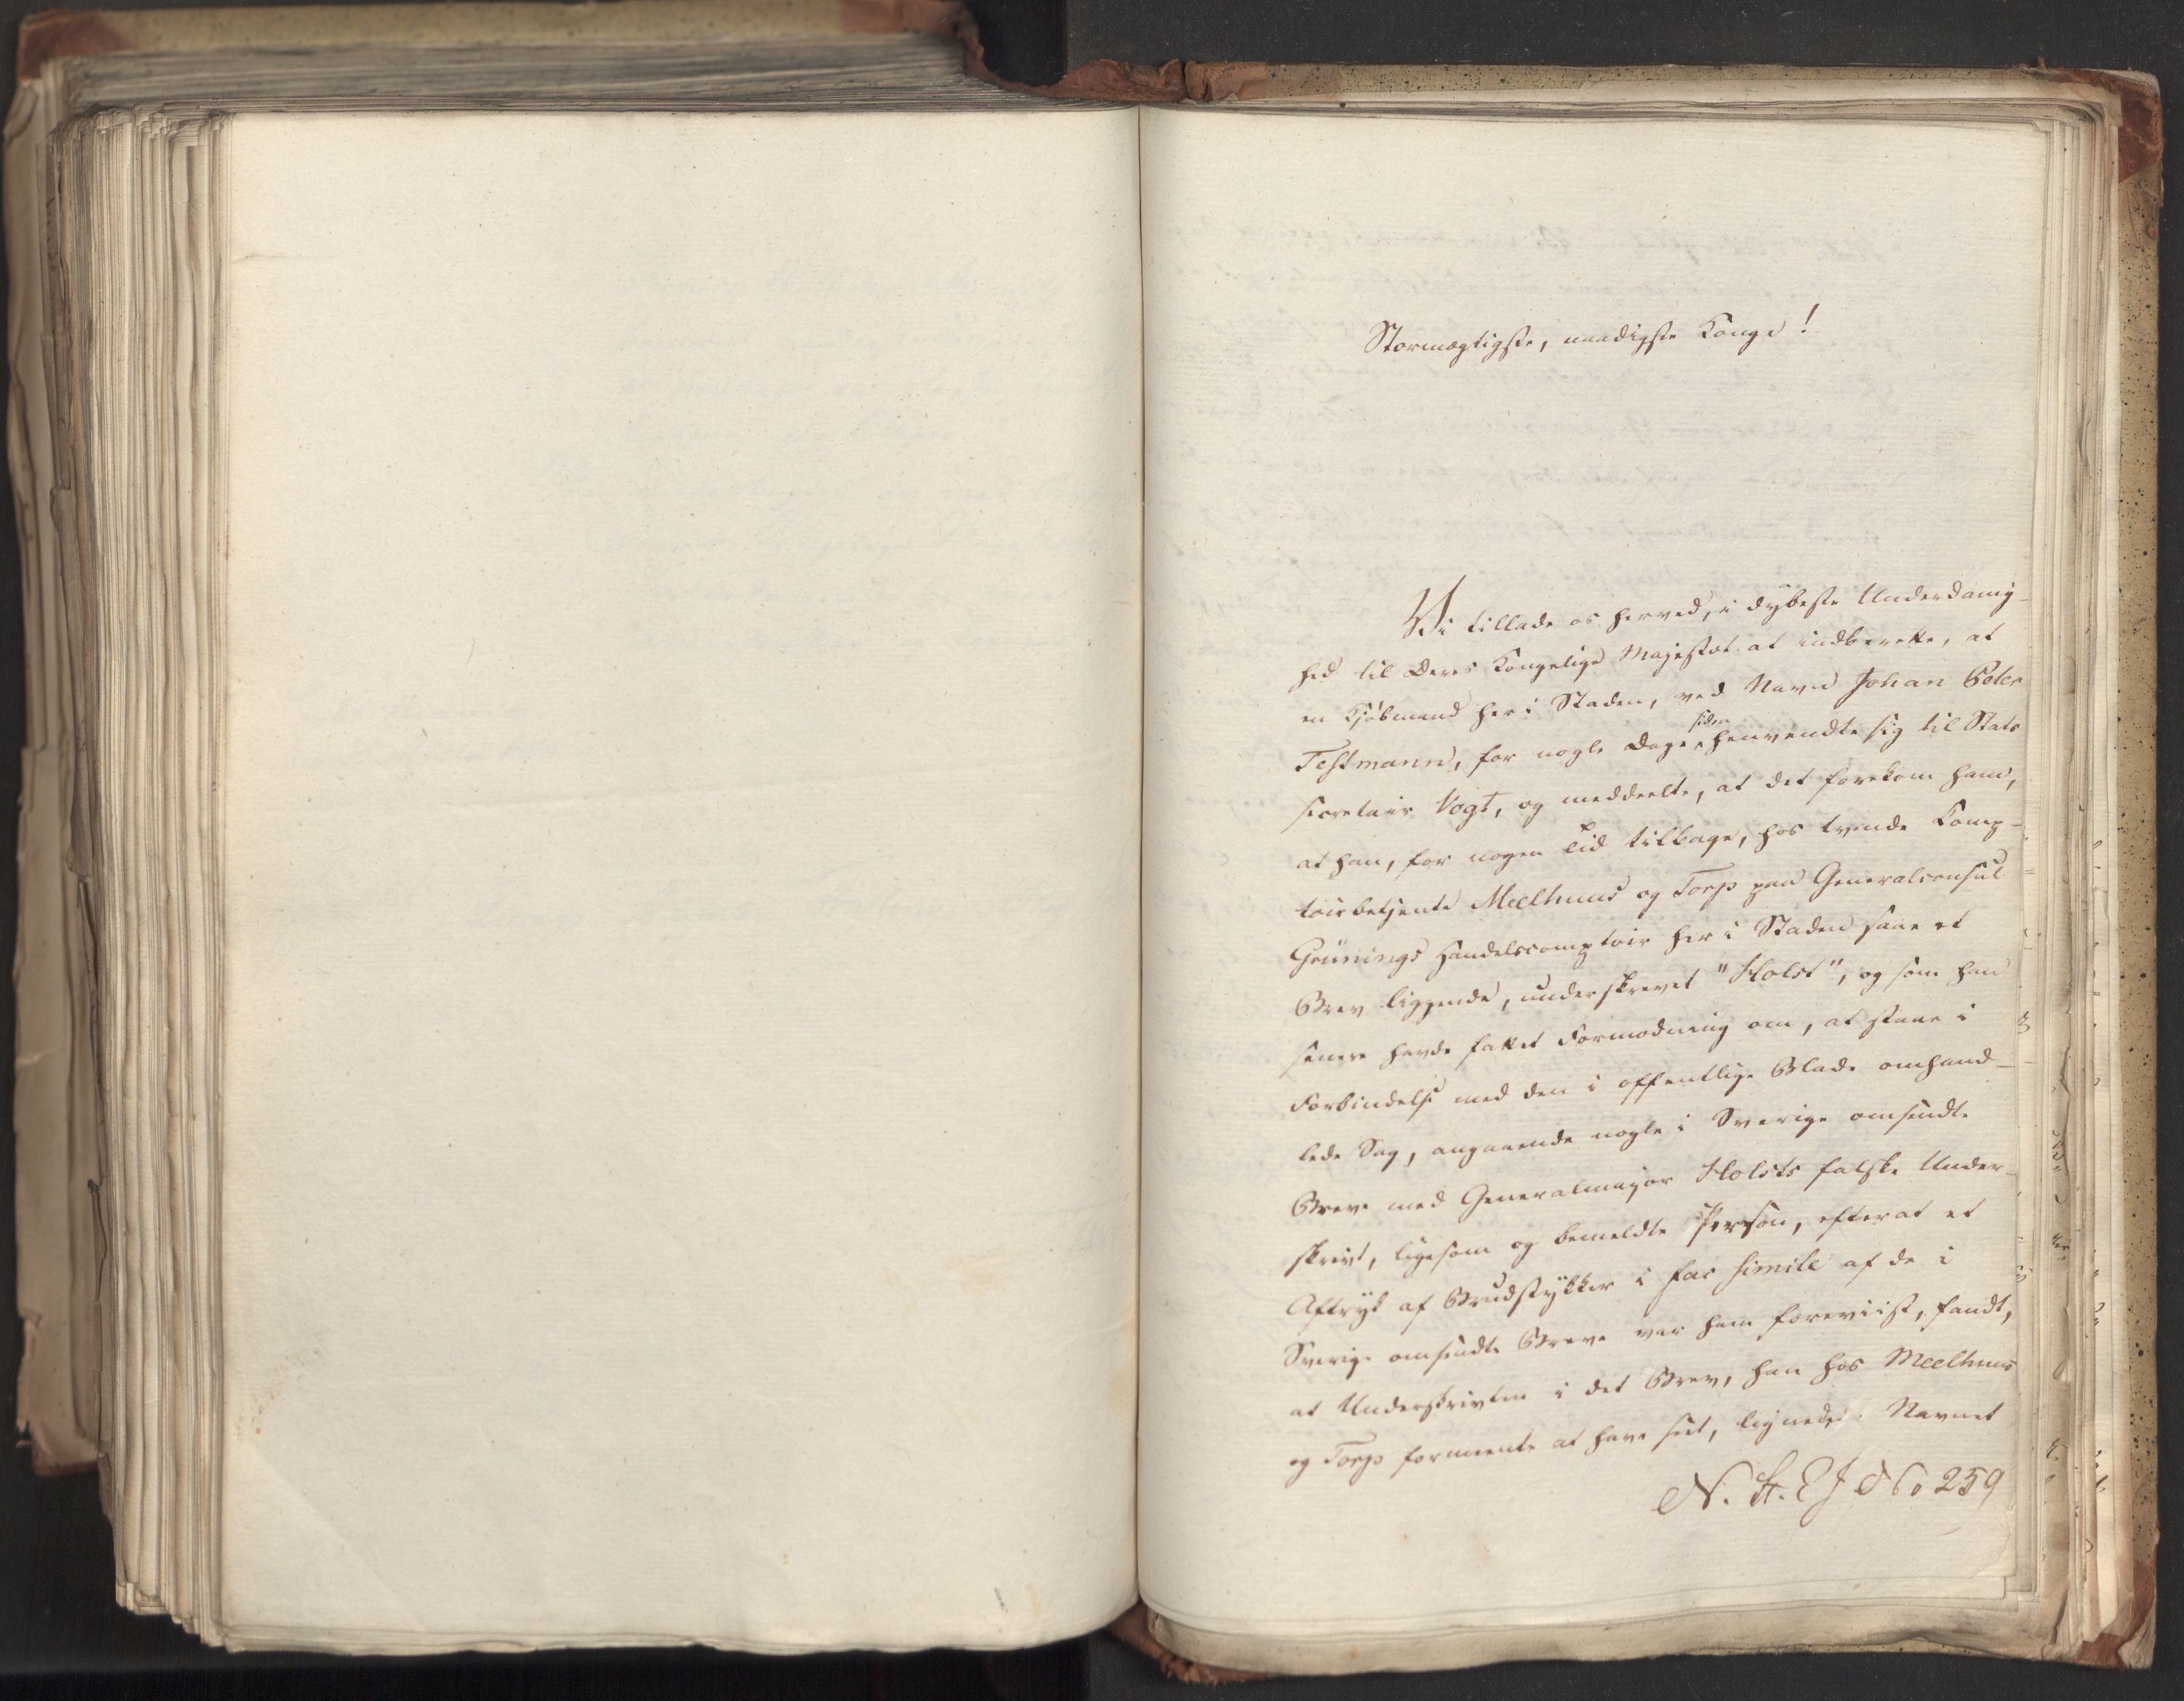 Stormægtigste, naadigste Konge!
Vi tillade os herved, i dybeste Underdanig-
hed til Deres Kongelige Majestæt at indberette, at
en Kjøbmand her i Staden, ved Navn Johan Peter
Testmann, for nogle Dage siden henvendte sig til Stats
secretair Vogt, og meddeelte, at det forekom ham,
at han, for nogen Tid tilbage, hos tvende Comp-
toirbetjente Meelhuus og Torp paa Generalconsul
Grünings Handelscomptoir her i Staden saae et
Brev liggende, underskrevet "Holst", og som han
senere havde fattet Formodning om, at staae i
Forbindelse med den i offentlige Blade omhand-
lede Sag, angaaende nogle i Sverige omsendte
Breve med Generalmajor Holsts falske Under-
skrivt, ligesom og bemeldte Person, efterat et
Aftryk af Brudstykker i fac simile af de i
Sverige omsendte Breve var ham foreviist, fandt,
at Underskrivten i det Brev, han hos Meelhuus
og Torp formeente at have seet, lignede Navnet
N. St. E J No 259